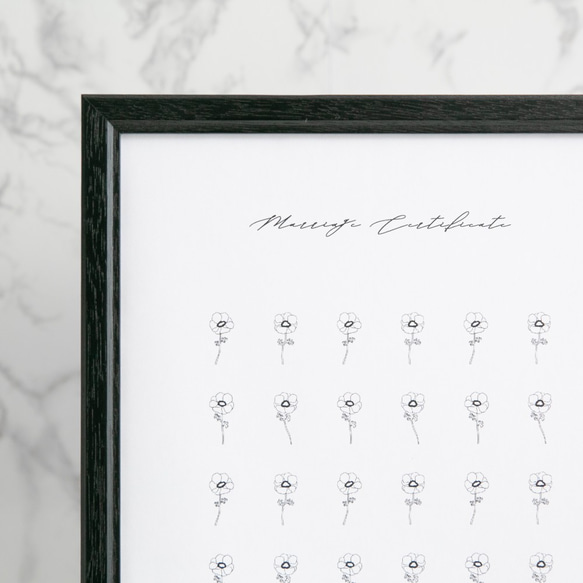 Marriage Certificate